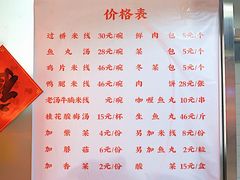 价格表
过桥米线 30元/碗 鲜肉包 5元/个
鱼丸汤 28元/碗 菜包 5元/个
鸡片米线 46元/碗 冬菜包 5元/个
鸭腿米线 46元/碗 肉饼 28元/张
老汤牛腩米线 元/碗 咖喱鱼丸 10元/串
桂花酸梅汤 15元/杯 生鱼丸 46元/斤
加紫菜 4元/份 另加米线 8元/份
加蘑菇 6元/份 另加鱼丸 2元/粒
加香菜 2元/份 酸菜 15元/盒